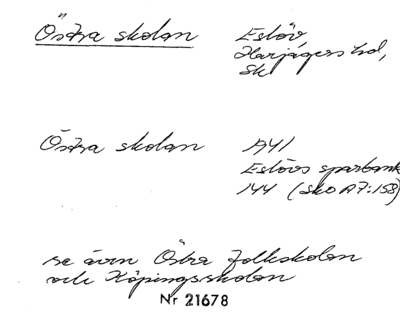 Östra skolan Eslöv
Harjagers hd,
Sk
Östra skolan 1941
Eslövs sparbank
144 (SkO A7:158)
se även Östra folkskolan
och Köpingsskolan
Nr 21678